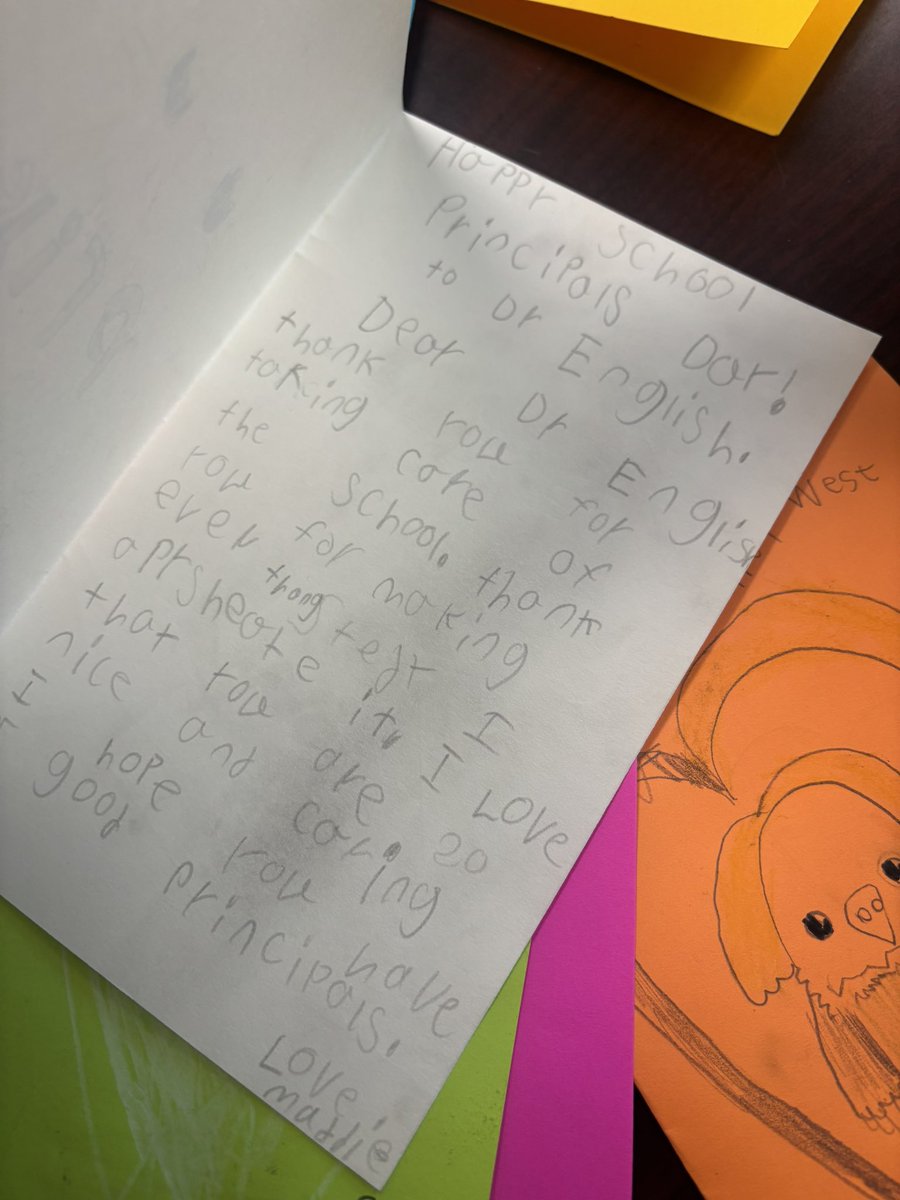 Happy School
Principals Day!
to Dr English.
Dear Dr English
thank you for
taking care of
the school. thank
you for making
evey thong I
apysheate it. I Love
that you are so
nice and caring
I hope you have
good principals.
Love
maddie
West